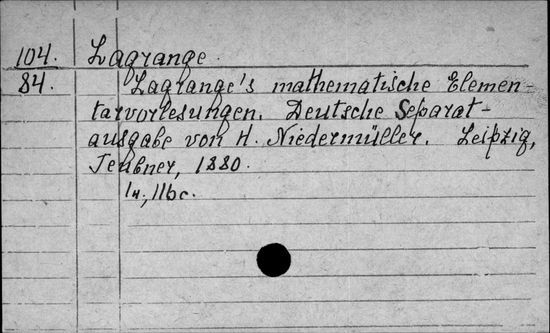 104. Lagrange.
84. Lagrange's mathematische Elemen-
tarvorlesungen. Deutsche Separat-
ausgabe von H. Niedermüller. Leipzig,
Teubner, 1880.